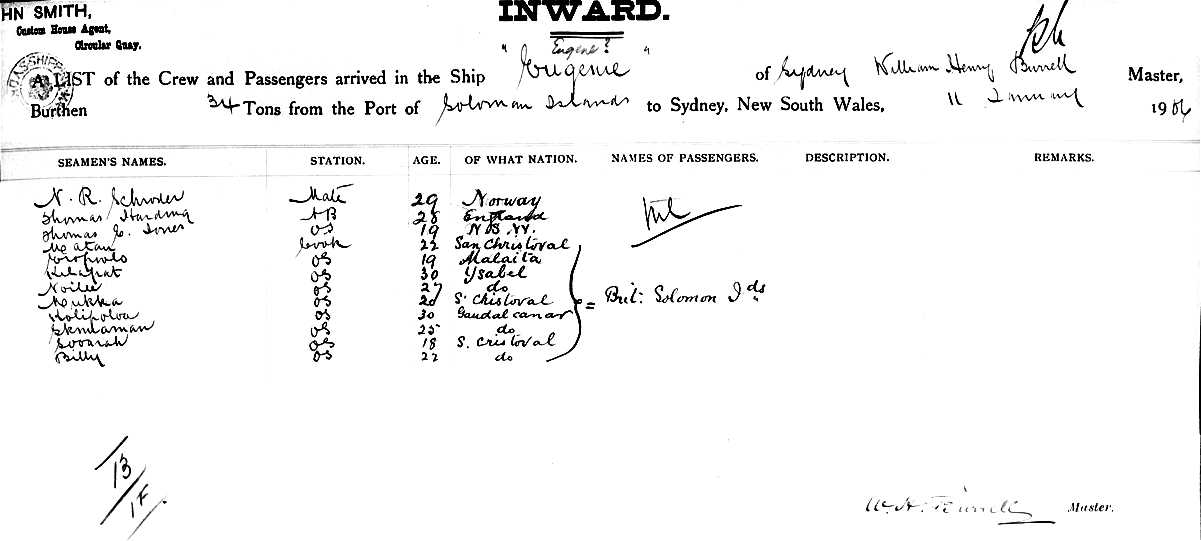 HN SMITH,
Custom House Agent,
Circular Quay.
INWARD.
Eugene?
A LIST of the Crew and Passengers arrived in the Ship "Eugenie" of Sydney William Henry Burrell Master,
Burthen 34 Tons from the Port of Soloman Islands to Sydney, New South Wales, 11 January 1906
SEAMEN'S NAMES. STATION. AGE. OF WHAT NATION. NAMES OF PASSENGERS. DESCRIPTION. REMARKS.
N. R. Schroder Mate 29 Norway Nil
Thomas Harding AB 28 England
Thomas C. Jones OS 19 N.S.W.
Cook 22 San Christoval
OS 19 Malaita
OS 30 Ysabel
OS 27 do
OS 20 S. Christoval = Brit: Solomon Ids
OS 30 Gaudalcanar
OS 25 do
OS 18 S. Cristoval
Billy OS 22 do
13
W. H. Burrell Master.